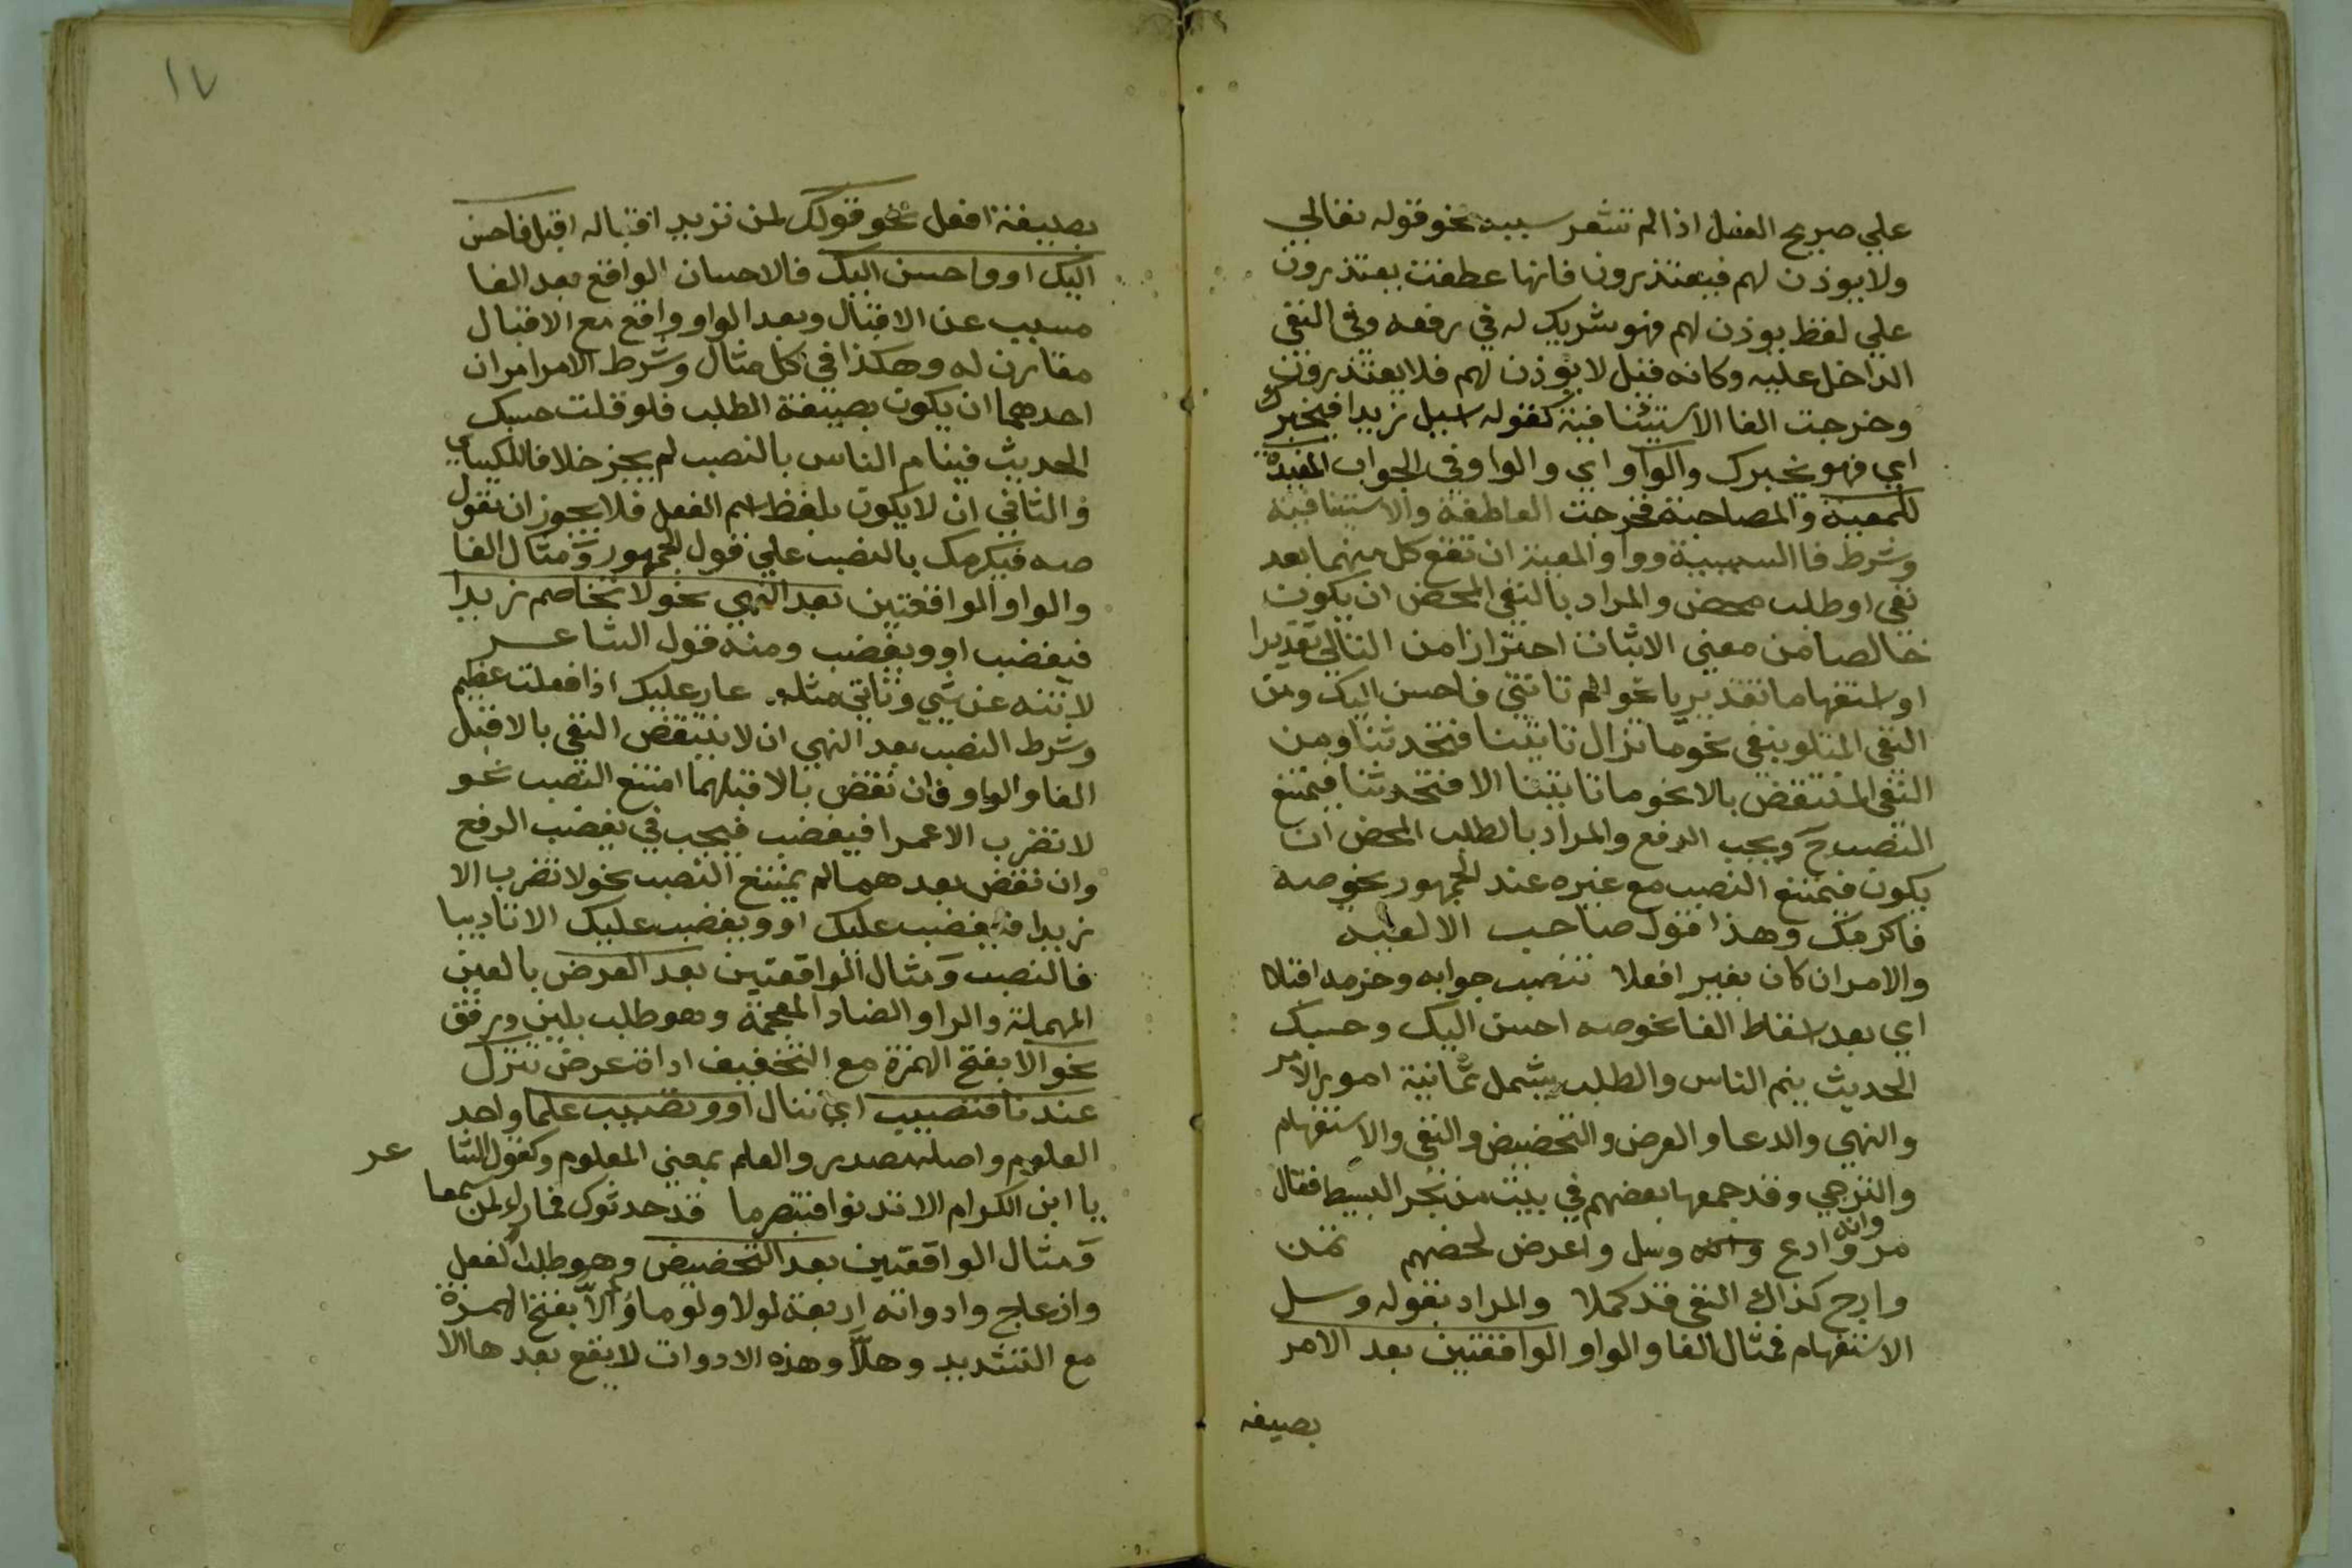 علي صريح الفعل اذا لم تشعر سببه نحو قوله تعالي
ولا يوذن لهم فيعتذرون فانها عطفت يعتذرون
علي لفظ يوذن لهم فهو شريك له في رفعه وفي النفي
الداخل عليه وكانه قيل لا يوذن لهم فلا يعتذرون
وخرجت الفا الاستئنافية كقوله اسيل زيدا فيخبرك
اي فهو يخبرك والواو اي والواو في الجواب المفيدة
للمعية والمصاحبة فخرجت العاطفة والاستئنافية
وشرط فا السببية وواو المعية ان تقع كل منهما بعد
نفي او طلب محض والمراد بالنفي المحض ان يكون
خالصا من معني الاثبات احترازا من التالي تقديرا
او استفهاما تقديريا نحو الم تاتني فاحسن اليك ومن
النفي المتلو بنفي نحو ما تزال تاتينا فتحدثنا ومن
النفي المنتقض بالا نحو ما تاتينا الا فتحدثنا فيمتنع
النصب ح ويجب الرفع والمراد بالطلب المحض ان
يكون فيمتنع النصب مع غيره عند الجمهور نحو صه
فاكرمك وهذا قول صاحب الالفيه
والامر ان كان بغير افعلا تنصب جوابه وجزمه اقبلا
اي بعد اسقاط الفا نحو صه احسن اليك وحسبك
الحديث ينم الناس والطلب يشمل ثمانية امور الامر
والنهي والدعا والعرض والتحضيض والنفي والاستفهام
والترجي وقد جمعها بعضهم في بيت من بحر البسيط فقال
مر وانه وادع وسل واعرض لحضهم تمن
وارج كذاك النفي قد كملا والمراد بقوله وسل
الاستفهام فمثال الفا والواو الواقعتين بعد الامر
بصيغه
١٧
بصيغة افعل نحو قولك لمن تريد اقباله اقبل فاحسن
اليك او واحسن اليك فالاحسان الواقع بعد الفا
مسبب عن الاقبال وبعد الواو واقع مع الاقبال
مقارن له وهكذا في كل مثال وشرط الامر امران
احدهما ان يكون بصيغة الطلب فلو قلت حسبك
الحديث فينام الناس بالنصب لم يجز خلافا للكيساي
والثاني ان لا يكون بلفظ اسم الفعل فلا يجوز ان تقول
صه فيكرمك بالنصب علي قول الجمهور ومثال الفا
والواو الواقعتين بعد النهي نحو لا تخاصم زيدا
فيغضب او ويغضب ومنه قول الشاعر
لا تنه عن شي وتاتي مثله عار عليك اذا فعلت عظيم
وشرط النصب بعد النهي ان لا ينتقض النفي بالا قبل
الفا والواو فان نقض بالا قبلهما امتنع النصب نحو
لا تضرب الا عمرا فيغضب فيجب في يغضب الرفع
وان نقض بعدهما لم يمتنع النصب نحو لا تضرب الا
زيدا فيغضب عليك او ويغضب عليك الا تاديبا
فالنصب ومثال الواقعتين بعد العرض بالعين
المهملة والرا والضاد المعجمة وهو طلب بلين ورفق
نحو الا بفتح الهمزة مع التخفيف اداة عرض تنزل
عندنا فتصيب اي تنال او وتصيب علما واحد
العلوم واصله مصدر والعلم بمعني المعلوم وكقول الشاعر
يا ابن الكرام الا تدنوا فتبصر ما قد حدثوك فما راء كمن سمعا
ومثال الواقعتين بعد التحضيض وهو طلب الفعل
وازعاج وادواته اربعة لولا ولوما وألاّ بفتح الهمزة
مع التشديد وهلاّ وهذه الادوات لا يقع بعدها الا